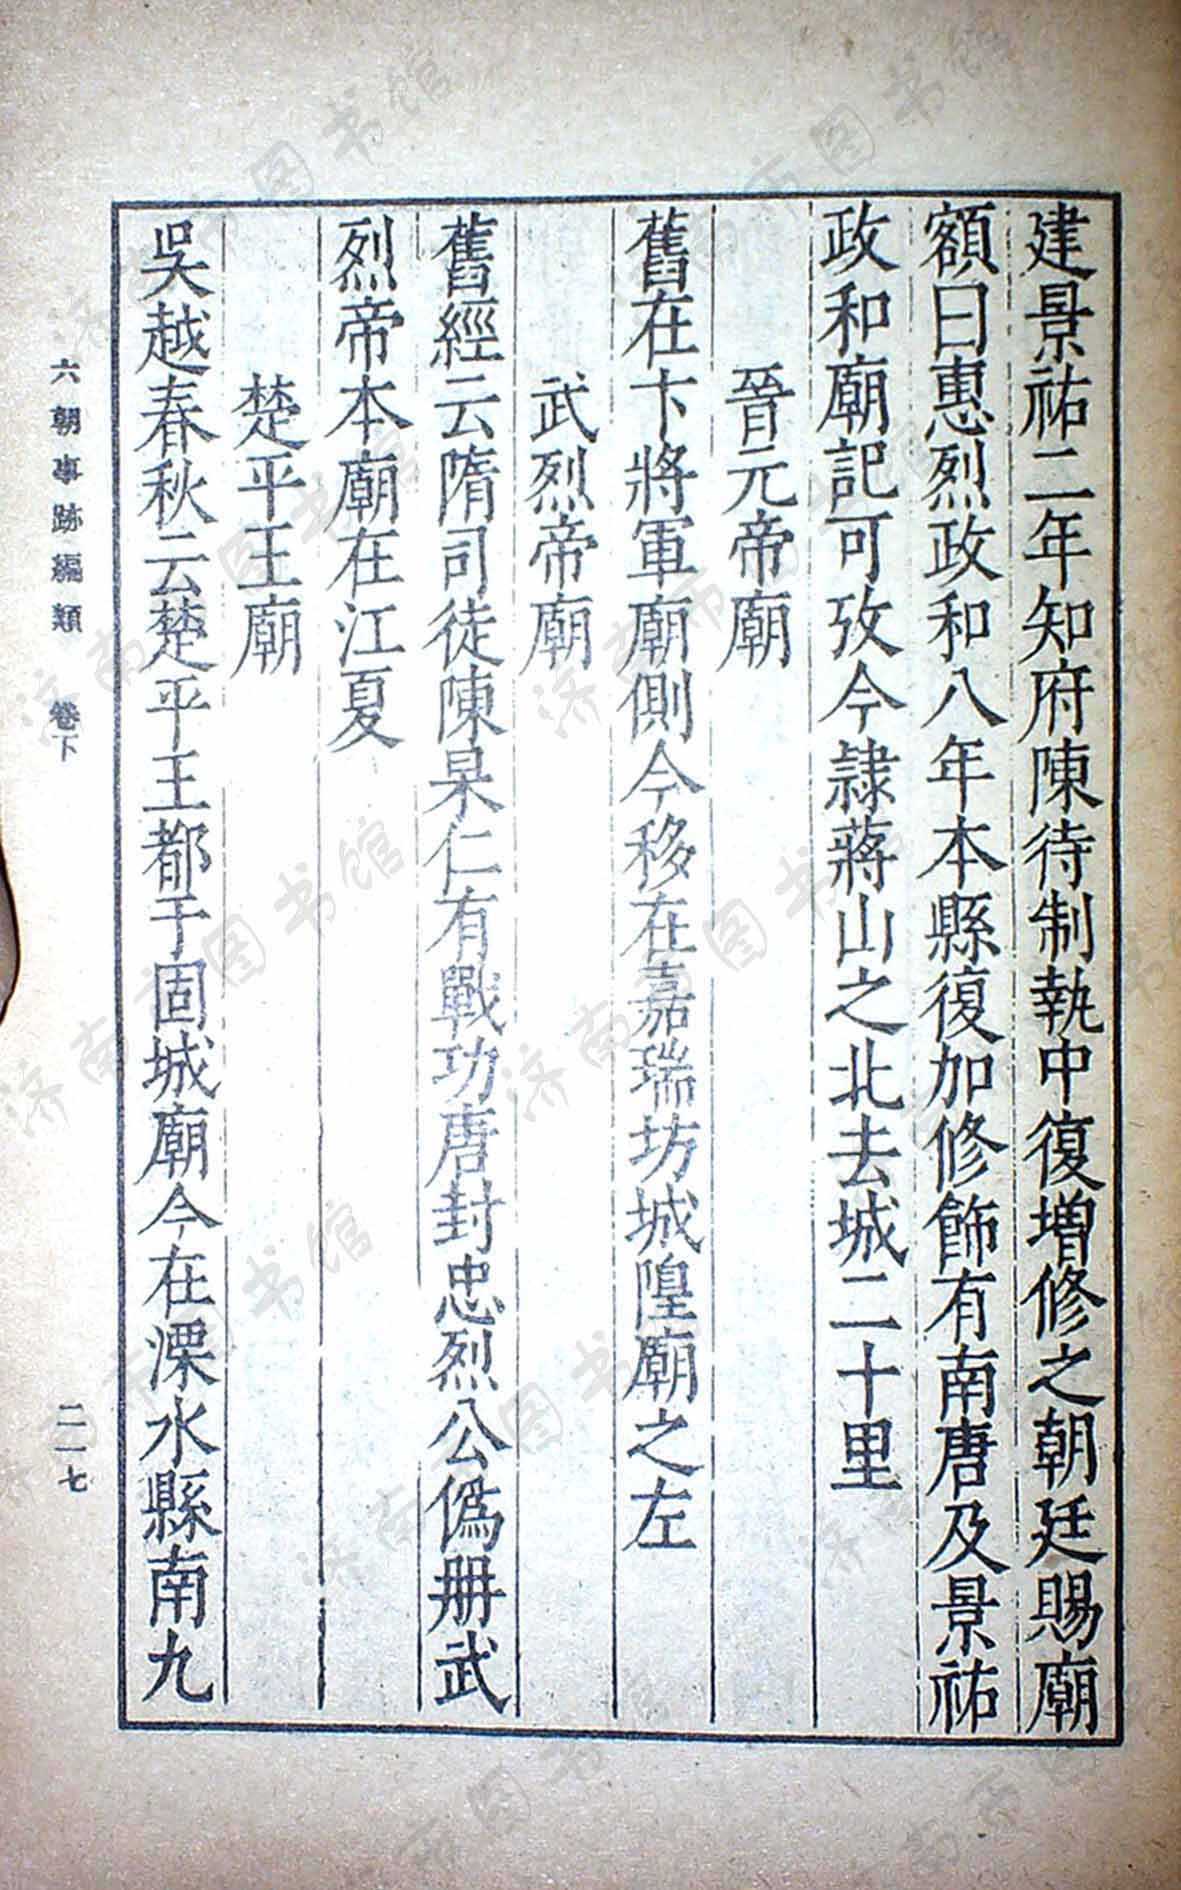 建景祐二年知府陳待制執中復增修之朝廷賜廟
額曰惠烈政和八年本縣復加修飾有南唐及景祐
政和廟記可攷今隷蔣山之北去城二十里
晉元帝廟
舊在卞將軍廟側今移在嘉瑞坊城隍廟之左
武烈帝廟
舊經云隋司徒陳杲仁有戰功唐封忠烈公僞册武
烈帝本廟在江夏
楚平王廟
吳越春秋云楚平王都于固城廟今在溧水縣南九
六朝事跡編類 卷下 二一七
济南市图书馆